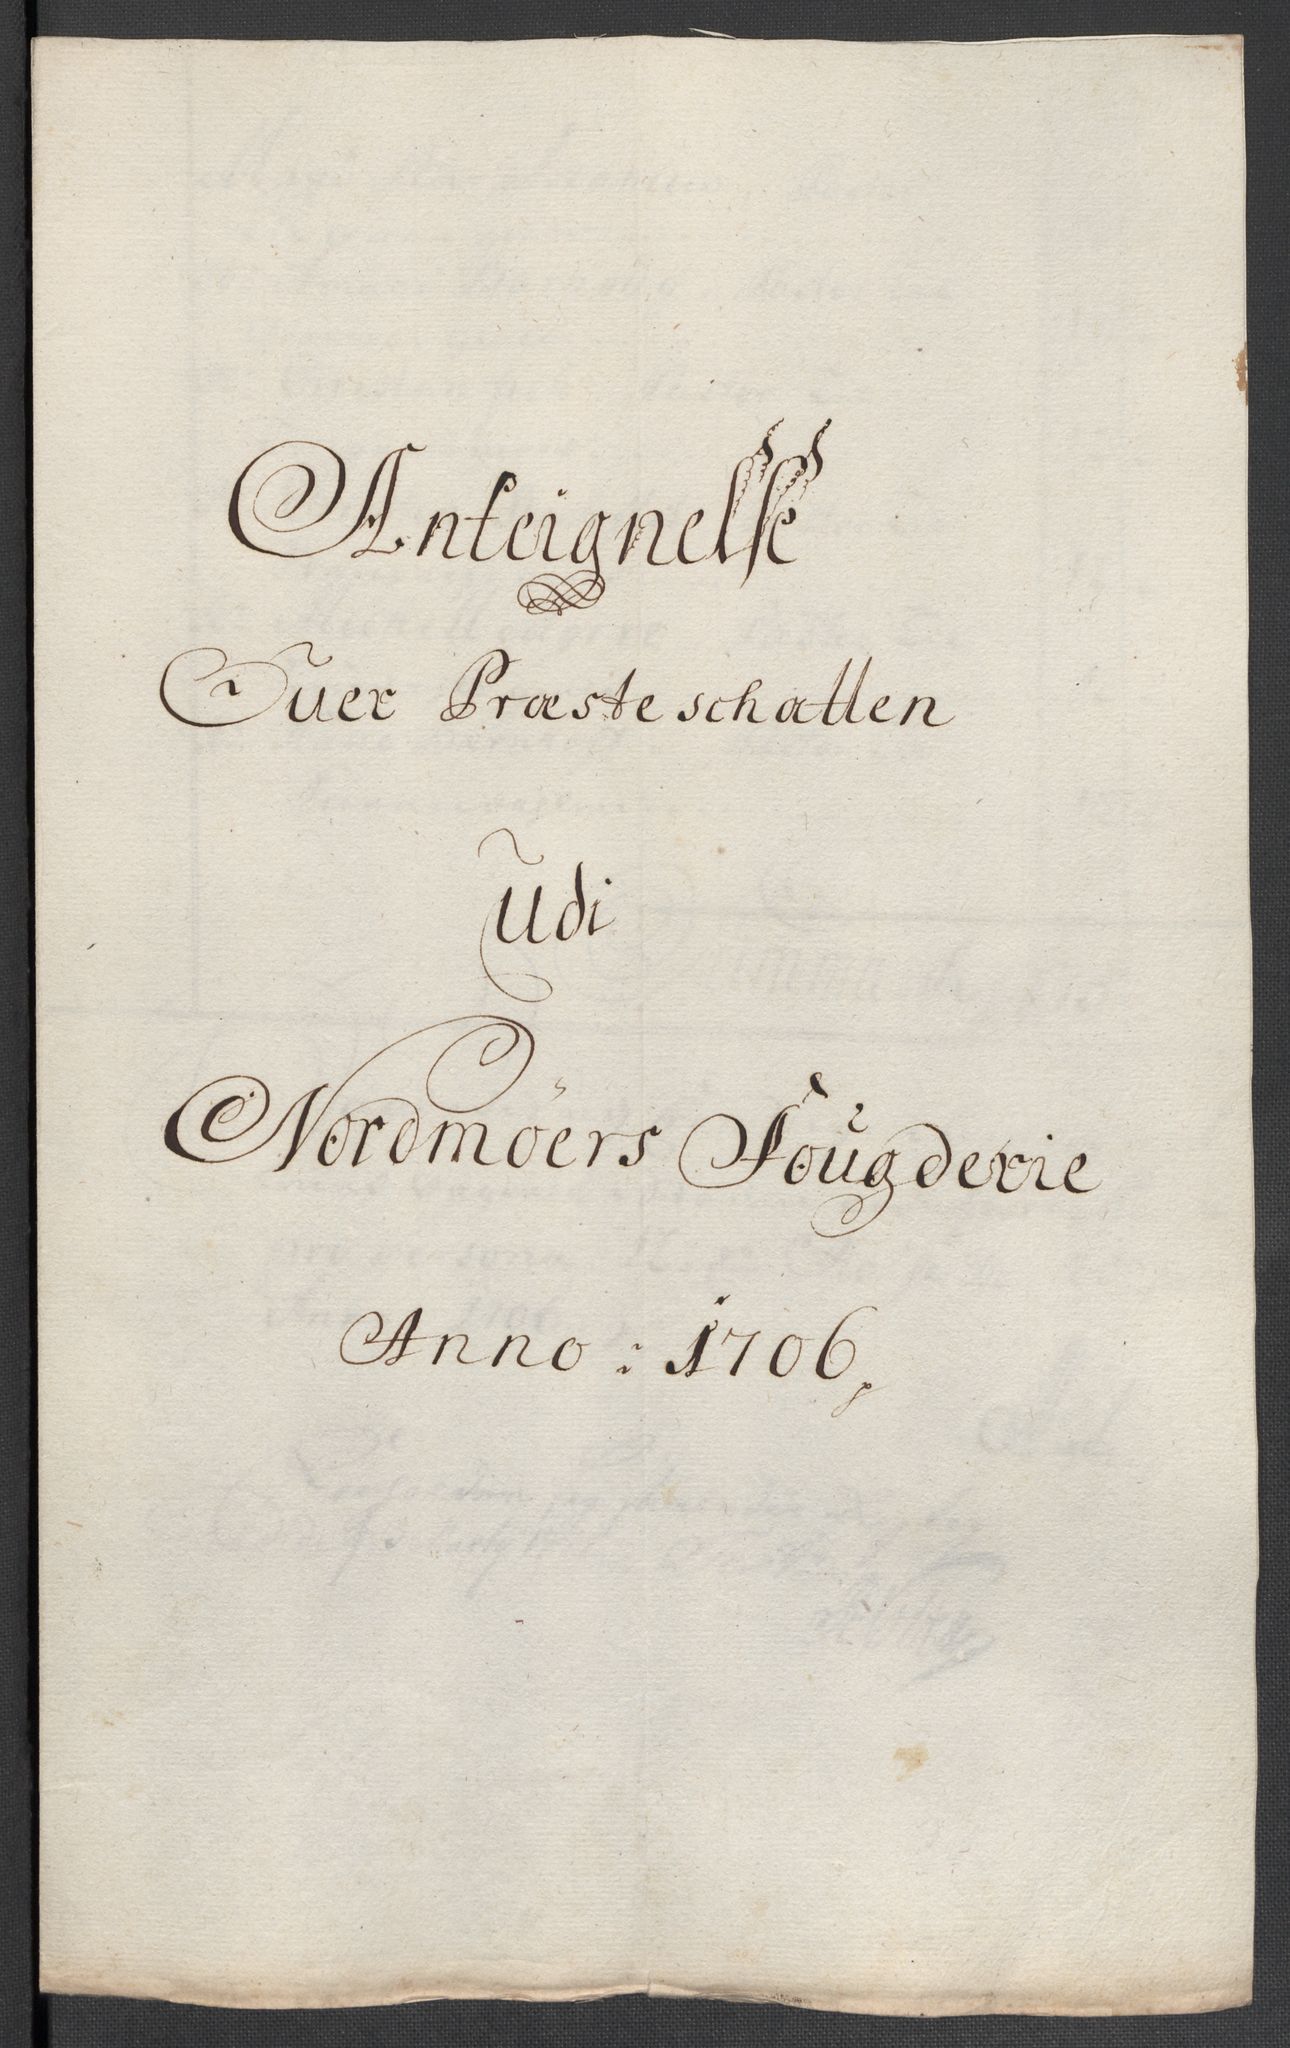 Anteignelse
Ouer Præsteschatten
Udi
Nordmöers Foŭgderie
Anno: 1706,